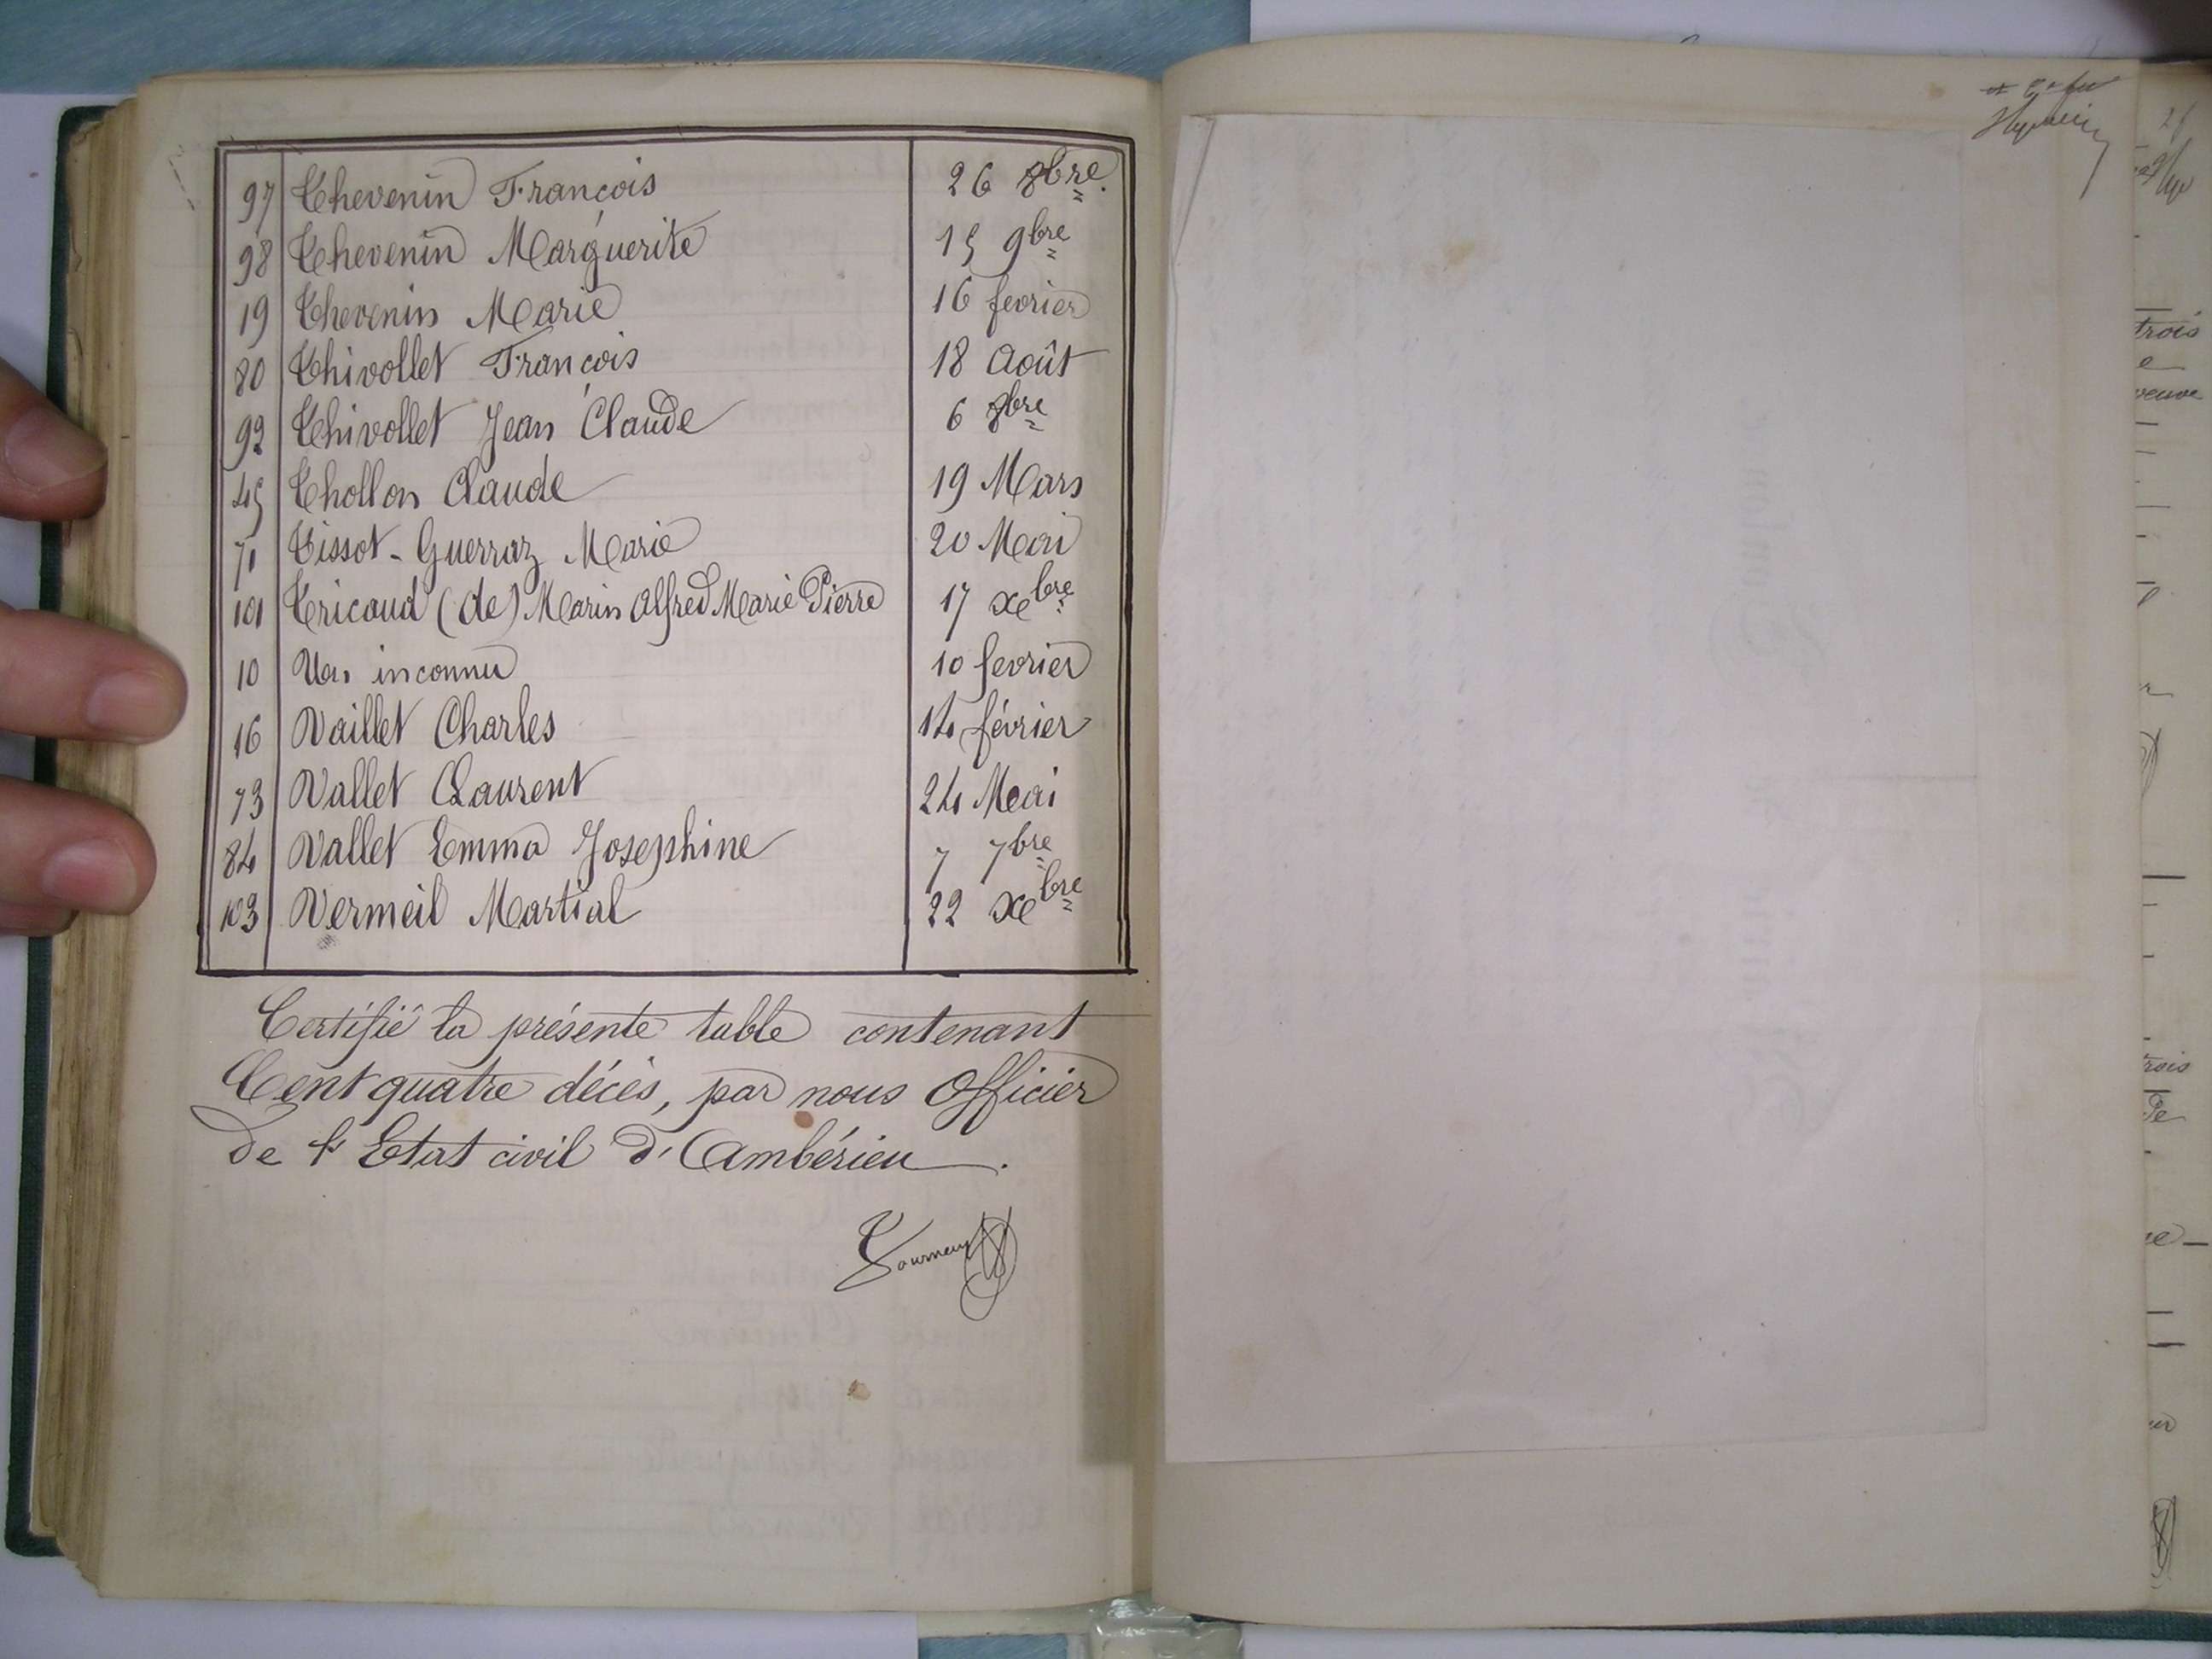 97 Thevenin François 26 8bre.
98 Thevenin Marguerite 15 9bre
19 Thevenin Marie 16 fevrier
80 Thivollet François 18 Août
92 Thivollet Jean Claude 6 8bre
45 Thollon Claude 19 Mars
71 Tissot-Guerraz Marie 20 Mai
101 Tricaud (de) Marin Alfred Marie Pierre 17 xbre
10 Un inconnu 10 fevrier
16 Vaillet Charles 14 février
73 Vallet Laurent 24 Mai
84 Vallet Emma Josephine 7 7bre
103 Vermeil Martial 22 xbre
Certifié la présente table contenant
Cent quatre décès, par nous Officier
de l'Etat civil d'Ambérieu.
trois
e
veuve
trois